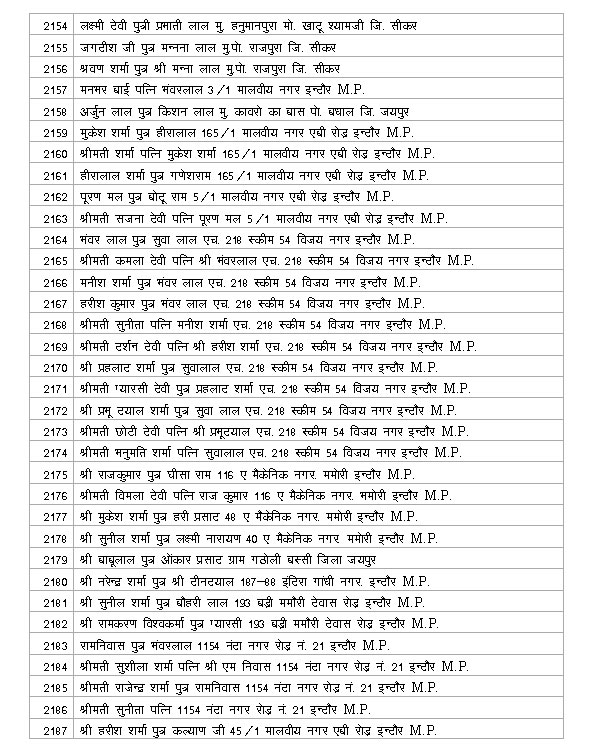 2154 लक्ष्मी देवी पुत्री प्रभाती लाल मु. हनुमानपुरा मो. खाटू श्यामजी जि. सीकर
2155 जगदीश जी पुत्र मन्नना लाल मु.पो. राजपुरा जि. सीकर
2156 श्रवण शर्मा पुत्र श्री मन्ना लाल मु.पो. राजपुरा जि. सीकर
2157 मनभर बाई पत्नि भंवरलाल 3/1 मालवीय नगर इन्दौर M.P.
2158 अर्जुन लाल पुत्र किशन लाल मु. कावरो का बास पो. बघाल जि. जयपुर
2159 मुकेश शर्मा पुत्र हीरालाल 165/1 मालवीय नगर एबी रोड़ इन्दौर M.P.
2160 श्रीमती शर्मा पत्नि मुकेश शर्मा 165/1 मालवीय नगर एबी रोड़ इन्दौर M.P.
2161 हीरालाल शर्मा पुत्र गणेशराम 165/1 मालवीय नगर एबी रोड़ इन्दौर M.P.
2162 पूरण मल पुत्र बोदू राम 5/1 मालवीय नगर एबी रोड़ इन्दौर M.P.
2163 श्रीमती सजना देवी पत्नि पूरण मल 5/1 मालवीय नगर एबी रोड़ इन्दौर M.P.
2164 भंवर लाल पुत्र सुवा लाल एच. 218 स्कीम 54 विजय नगर इन्दौर M.P.
2165 श्रीमती कमला देवी पत्नि श्री भंवरलाल एच. 218 स्कीम 54 विजय नगर इन्दौर M.P.
2166 मनीश शर्मा पुत्र भंवर लाल एच. 218 स्कीम 54 विजय नगर इन्दौर M.P.
2167 हरीश कुमार पुत्र भंवर लाल एच. 218 स्कीम 54 विजय नगर इन्दौर M.P.
2168 श्रीमती सुनीता पत्नि मनीश शर्मा एच. 218 स्कीम 54 विजय नगर इन्दौर M.P.
2169 श्रीमती दर्शन देवी पत्नि श्री हरीश शर्मा एच. 218 स्कीम 54 विजय नगर इन्दौर M.P.
2170 श्री प्रहलाद शर्मा पुत्र सुवालाल एच. 218 स्कीम 54 विजय नगर इन्दौर M.P.
2171 श्रीमती ग्यारसी देवी पुत्र प्रहलाद शर्मा एच. 218 स्कीम 54 विजय नगर इन्दौर M.P.
2172 श्री प्रभू दयाल शर्मा पुत्र सुवा लाल एच. 218 स्कीम 54 विजय नगर इन्दौर M.P.
2173 श्रीमती छोटी देवी पत्नि श्री प्रभूदयाल एच. 218 स्कीम 54 विजय नगर इन्दौर M.P.
2174 श्रीमती भनुमति शर्मा पत्नि सुवालाल एच. 218 स्कीम 54 विजय नगर इन्दौर M.P.
2175 श्री राजकुमार पुत्र घीसा राम 116 ए मैकेनिक नगर. भमोरी इन्दौर M.P.
2176 श्रीमती विमला देवी पत्नि राज कुमार 116 ए मैकेनिक नगर. भमोरी इन्दौर M.P.
2177 श्री मुकेश शर्मा पुत्र हरी प्रसाद 48 ए मैकेनिक नगर. भमोरी इन्दौर M.P.
2178 श्री सुनील शर्मा पुत्र लक्ष्मी नारायण 40 ए मैकेनिक नगर भमोरी इन्दौर M.P.
2179 श्री बाबूलाल पुत्र ओंकार प्रसाद ग्राम गठोली बस्सी जिला जयपुर
2180 श्री नरेन्द्र शर्मा पुत्र श्री दीनदयाल 187–88 इंदिरा गांधी नगर. इन्दौर M.P.
2181 श्री सुनील शर्मा पुत्र बौहरी लाल 193 बड़ी भमौरी देवास रोड़ इन्दौर M.P.
2182 श्री रामकरण विश्वकर्मा पुत्र ग्यारसी 193 बड़ी भमौरी देवास रोड़ इन्दौर M.P.
2183 रामनिवास पुत्र भंवरलाल 1154 नंदा नगर रोड़ नं. 21 इन्दौर M.P.
2184 श्रीमती सुशीला शर्मा पत्नि श्री एम निवास 1154 नंदा नगर रोड़ नं. 21 इन्दौर M.P.
2185 श्रीमती राजेन्द्र शर्मा पुत्र रामनिवास 1154 नंदा नगर रोड़ नं. 21 इन्दौर M.P.
2186 श्रीमती सुनीता पत्नि 1154 नंदा नगर रोड़ नं. 21 इन्दौर M.P.
2187 श्री हरीश शर्मा पुत्र कल्याण जी 45/1 मालवीय नगर एबी रोड़ इन्दौर M.P.